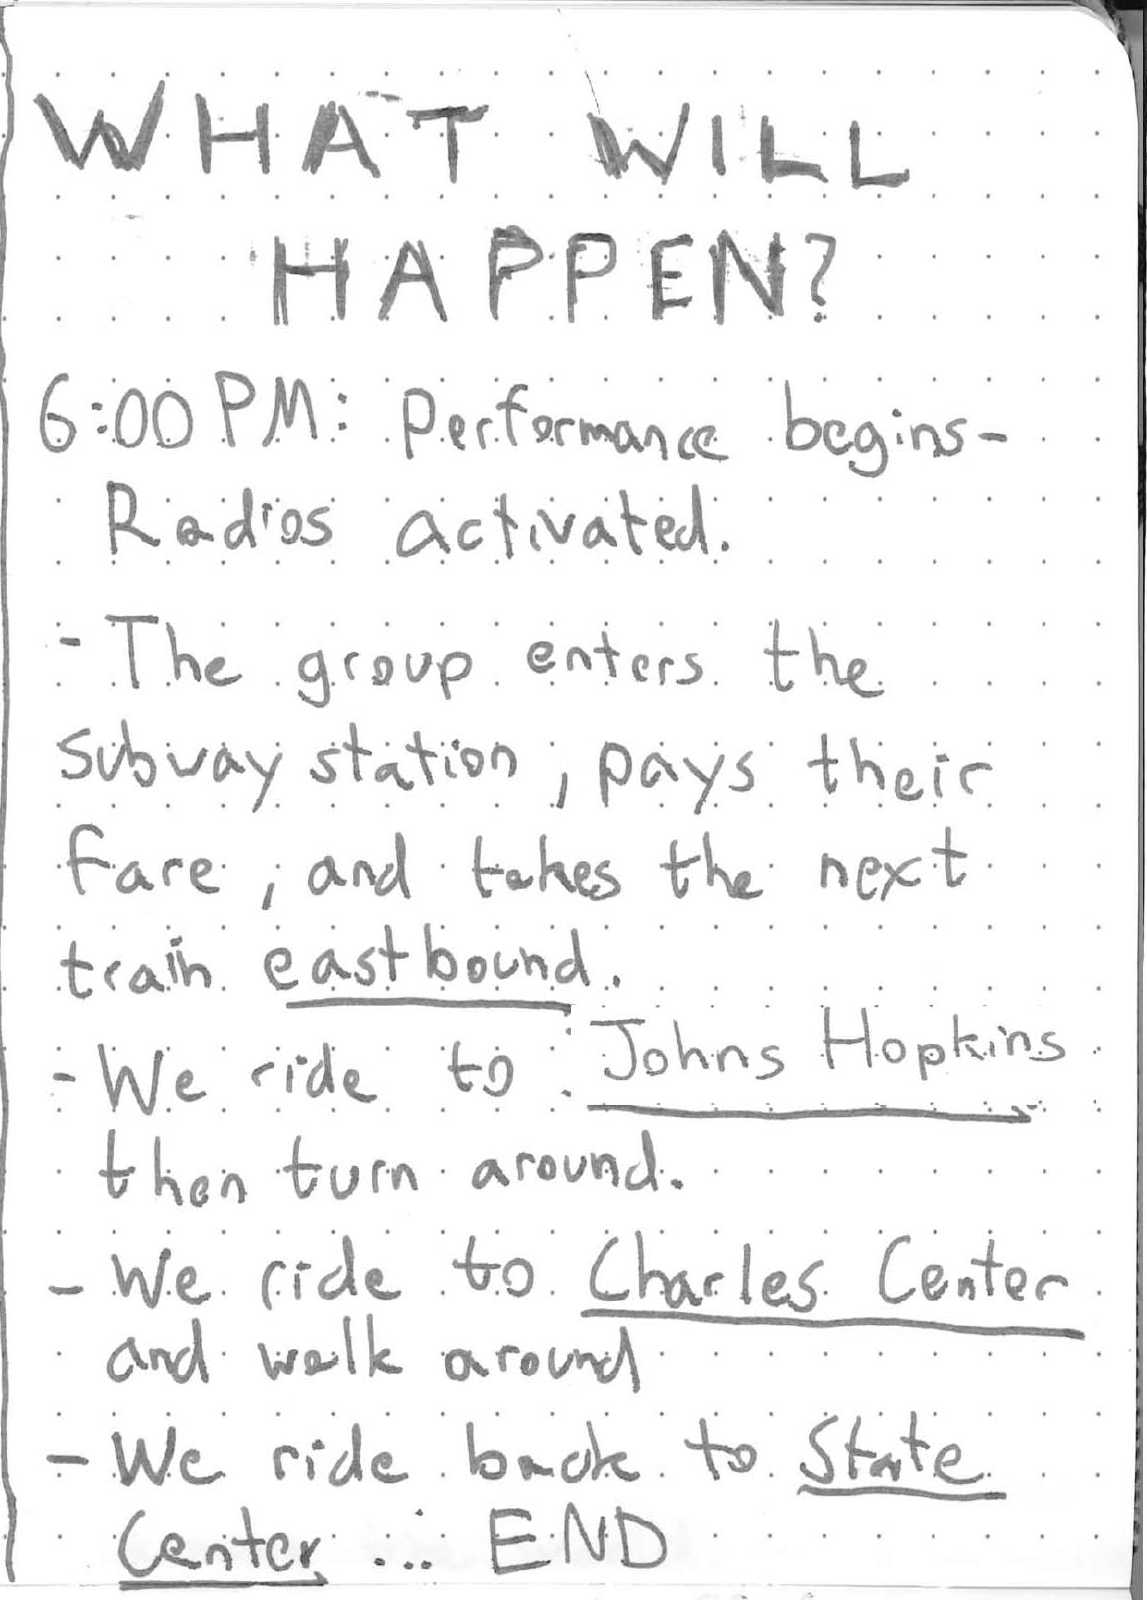 WHAT WILL
HAPPEN?
6:00 PM: Performance begins-
Radios activated.
- The group enters the
subway station, pays their
fare, and takes the next
train eastbound.
- We ride to Johns Hopkins
then turn around.
- We ride to Charles Center
and walk around
- We ride back to State
Center ... END